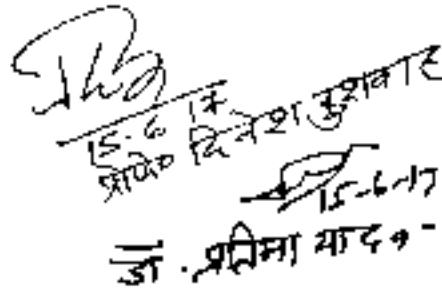 15.6.17
प्रो० दिनेश कुशवाह
15-6-17
डा. प्रतिमा यादव